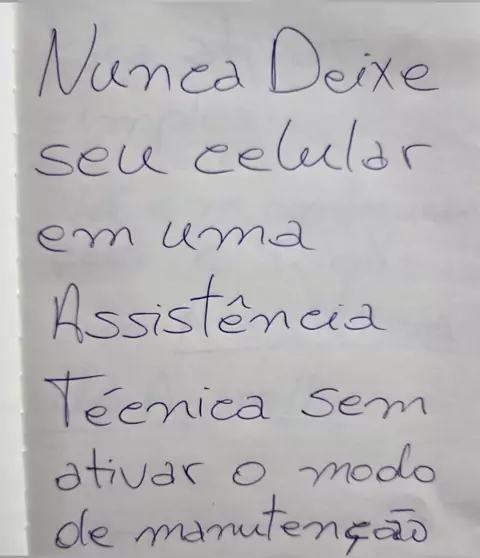 Nunca Deixe
seu celular
em uma
Assistência
Técnica sem
ativar o modo
de manutenção